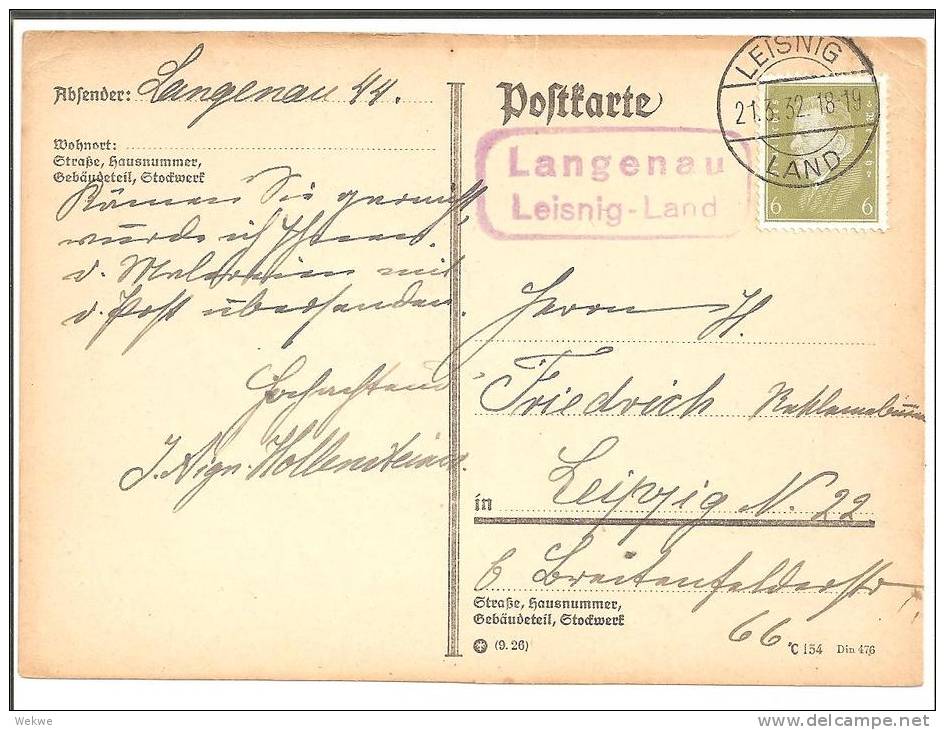 Absender: Langenau 44.
Wohnort:
Straße, Hausnummer,
Gebäudeteil, Stockwerk
Kämen Sie garnicht,
würde ich Ihnen
d. Malereien mit
d. Post übersenden.
Hochachtend
Hollenstein
Postkarte
LEISNIG
21.3.32.18-19
LAND
6 6
Langenau
Leisnig-Land
Herrn H.
Friedrich
in Leipzig N. 22
Breitenfelderstr
66
Straße, Hausnummer,
Gebäudeteil, Stockwerk
(9.26)
C 154 Din 476
Wekwe
delcampe.net